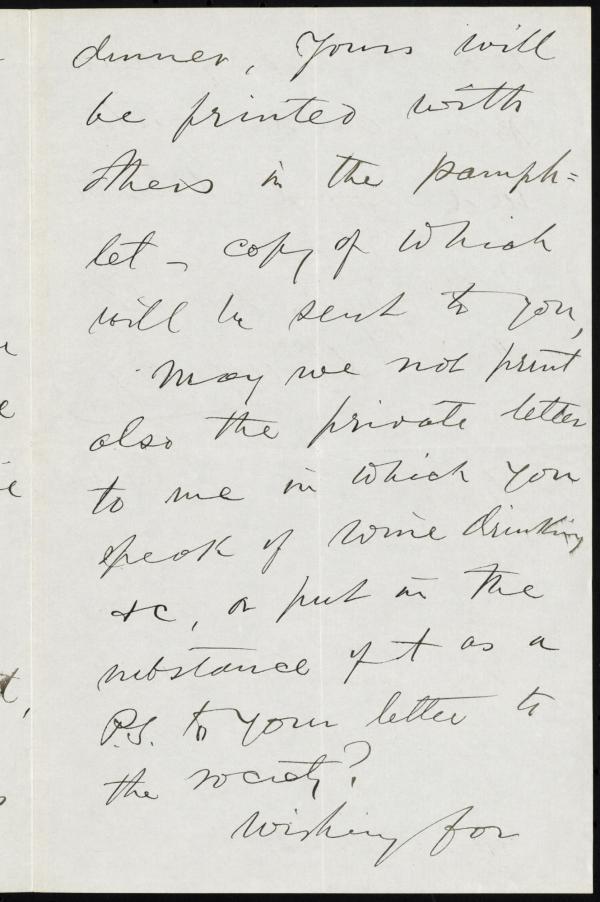 dinner, Yours will
be printed with
others in the pamph=
let – copy of which
will be sent to you,
May we not print
also the private letter
to me in which you
speak of wine drinking
&c, or put in the
substance of it as a
P.S. to your letter to
the society?
Wishing for